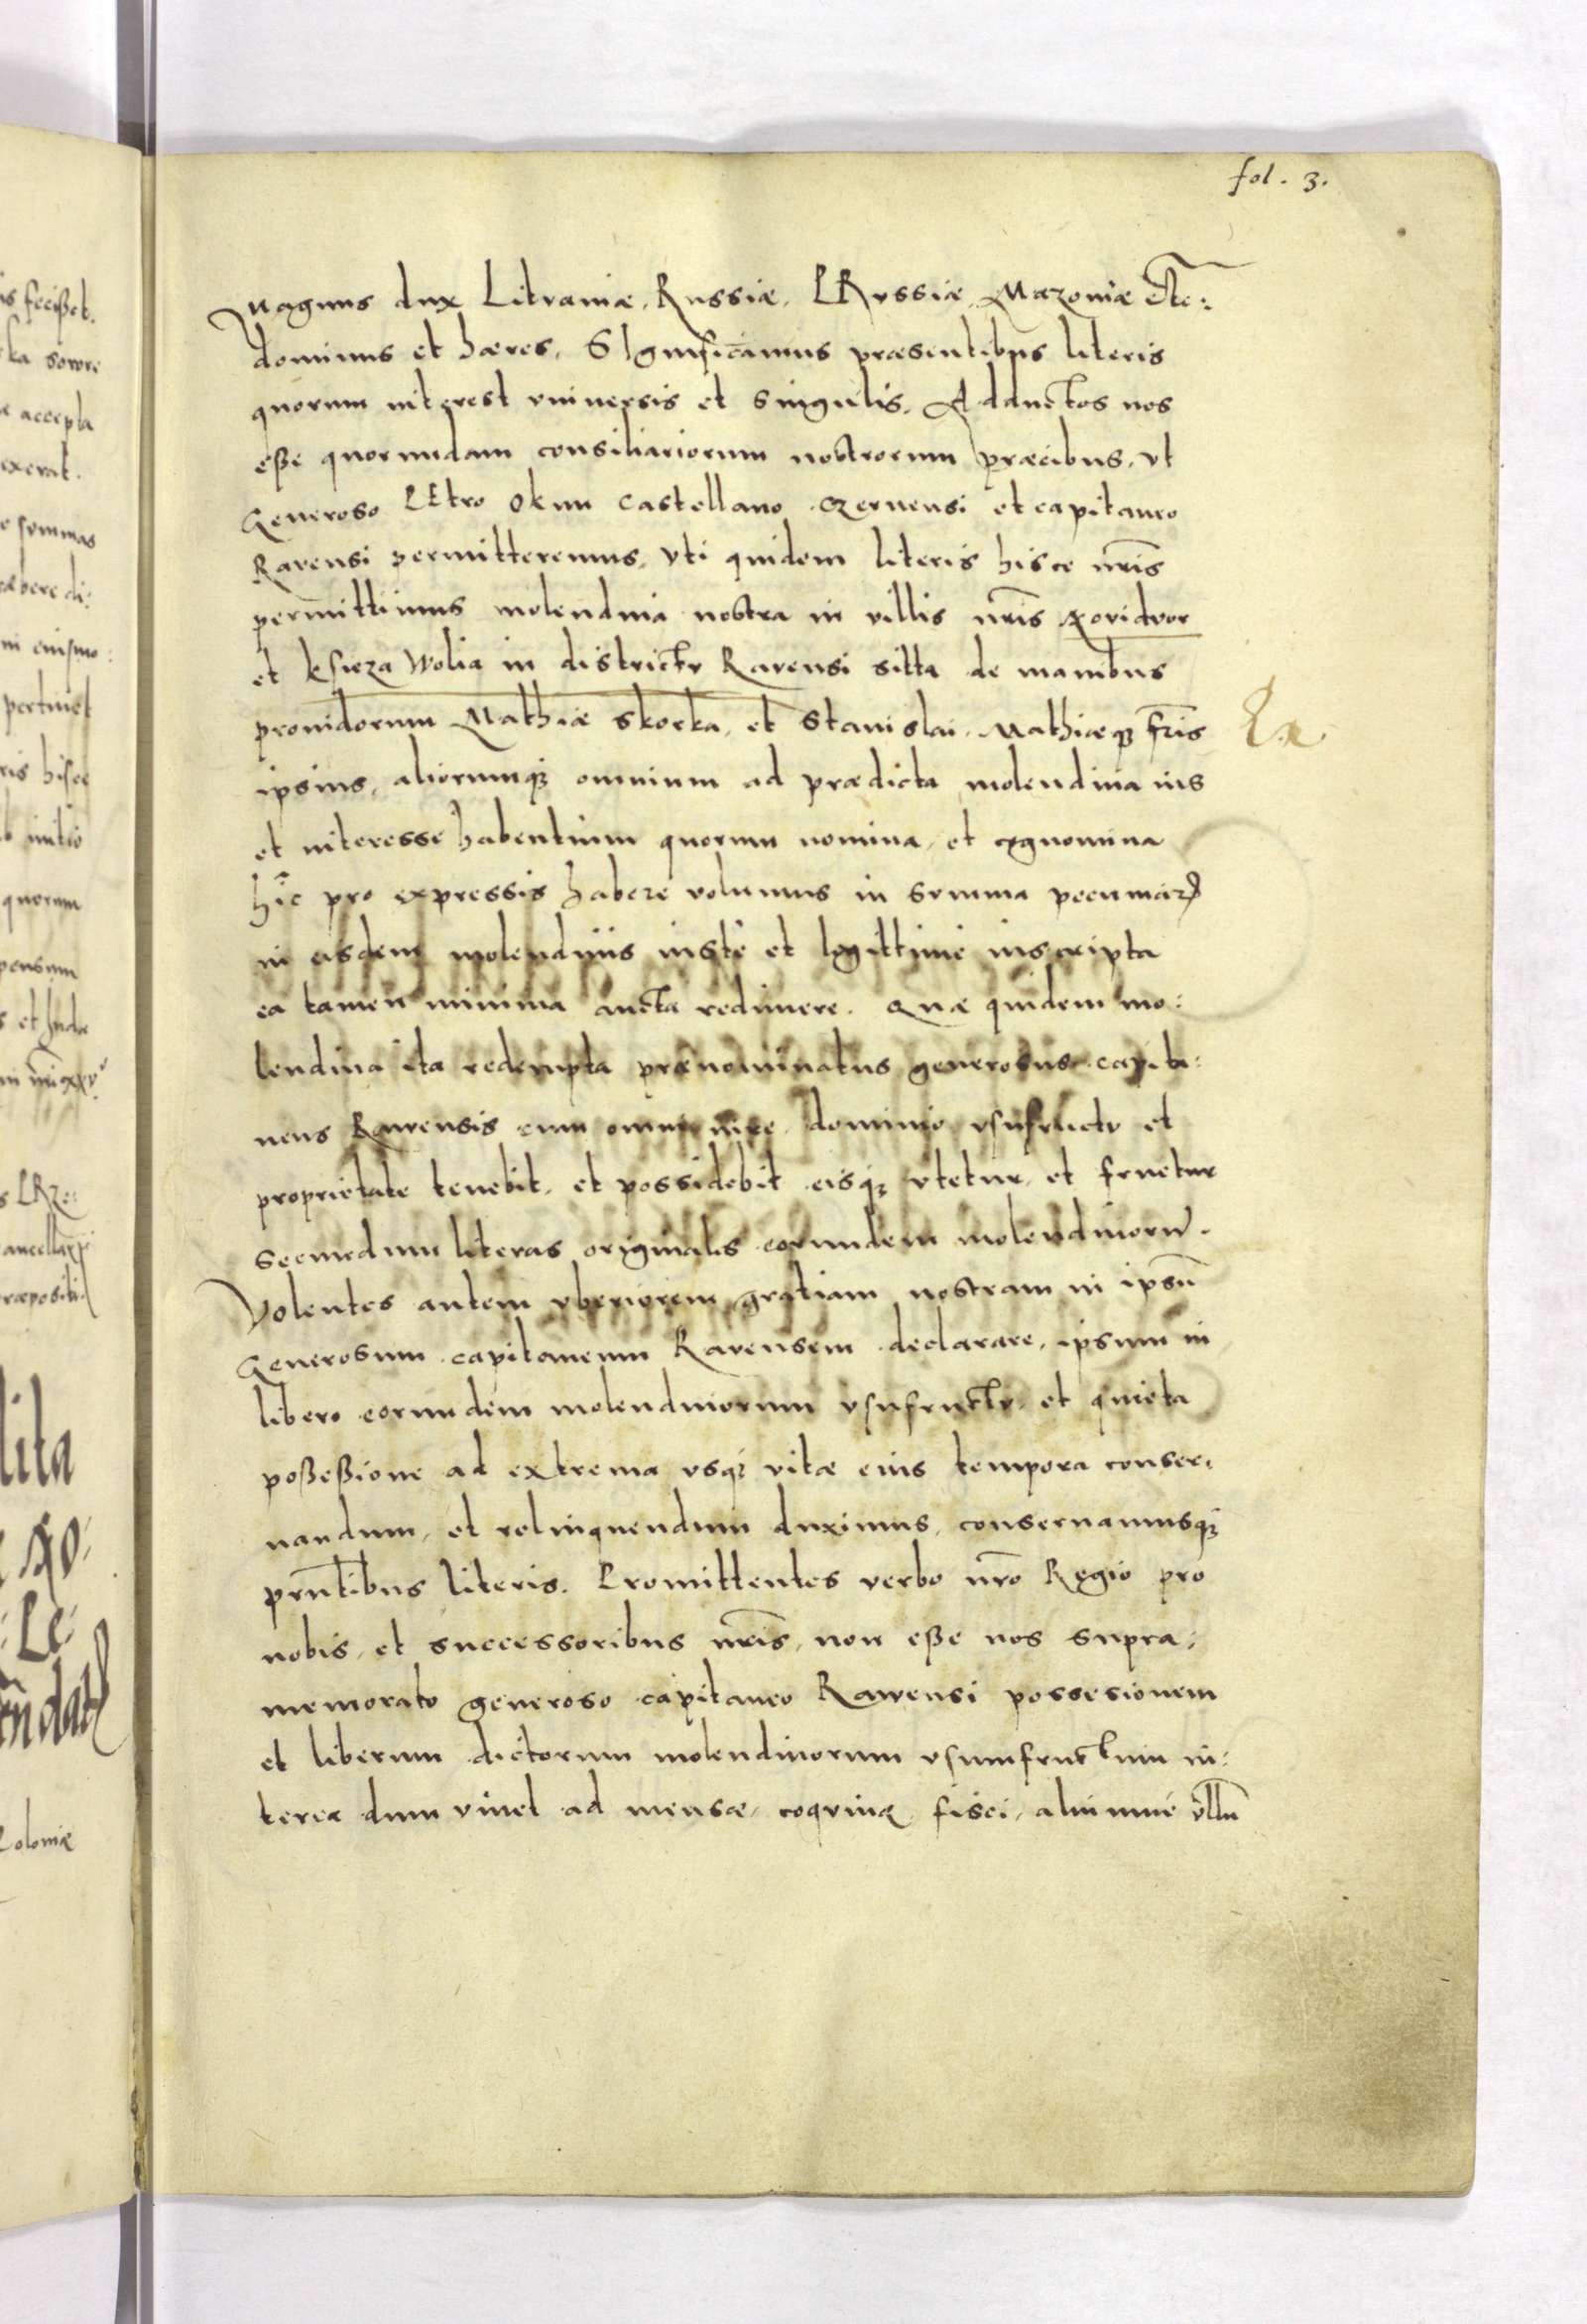 fol. 3.
Magnus dux Litvaniæ, Russiæ, PRvssiæ, Mazoviæ Etc:
dominus et hæres, SIgnificamus præsentibus literis
quorum interest vniuersis et singulis, Adductos nos
eße quorundam consiliariorum nostrorum præcibus, vt
Generoso PEtro Okun Castellano Czernensi et capitaneo
Ravensi permitteremus, vti quidem literis hisce nr̃is
permittimus molendina nostra in villis nr̃is
et Ksieza Wolia in districtv Ravensi sitta de manibus
prouidorum Mathiæ Skorka, et Stanislai, Mathiæqꝫ fr̃is
ipsius, aliorumqꝫ omnium ad prædicta molendina ius
et interesse habentium quorum nomina, et cognomina
hic pro expressis habere volumus in svmma pecuniarꝝ
in eisdem molendinis iuste et legittime inscripta
ea tamen minima aucta redimere. Quæ quidem mo:
lendina ita redempta prænominatus generosus capita:
neus Rawensis cum omni iure dominio vsufructv et
proprietate tenebit, et possidebit eisqꝫ vtetur, et fruetur
secundum literas originalis eorundem molendinorũ.
Volentes autem vberiorem gratiam nostram in ipsũ
Generosum capitaneum Ravensem declarare, ipsum in
libero eorundem molendinorum vsufructv, et quieta
poßeßione ad extrema vsqꝫ vitæ eius tempora conser:
uandum, et relinquendum duximus, conseruamusqꝫ
prñtibus literis. Promittentes verbo nr̃o Regio pro
nobis, et successoribus nr̃is, non eße nos supra:
memorato generoso capitaneo Rawensi possesionem
et liberum dictorum molendinorum vsumfructum in:
terea dum viuet ad mensæ, coqvinæ fisci, vllũ